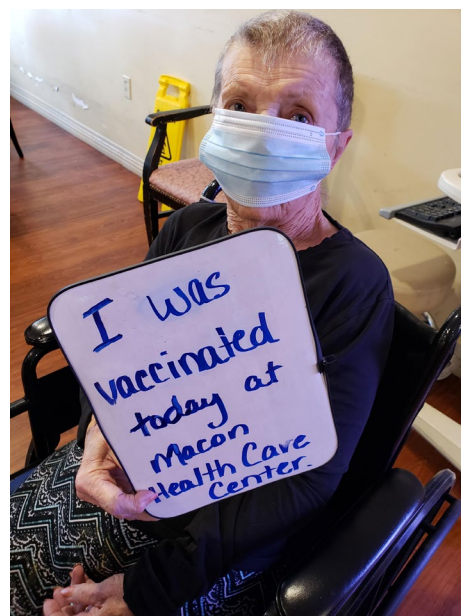 I was
vaccinated
today at
Macon
Health Care
Center.